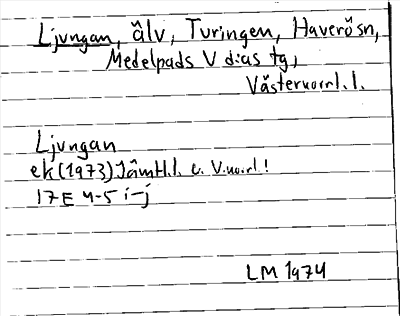 Ljungan, älv, Turingen, Haverö sn,
Medelpads V d:as tg,
Västernorrl. l.
Ljungan
ek (1973) Jämtl.l. o. V.norrl!
17E 4-5 i-j
LM 1974